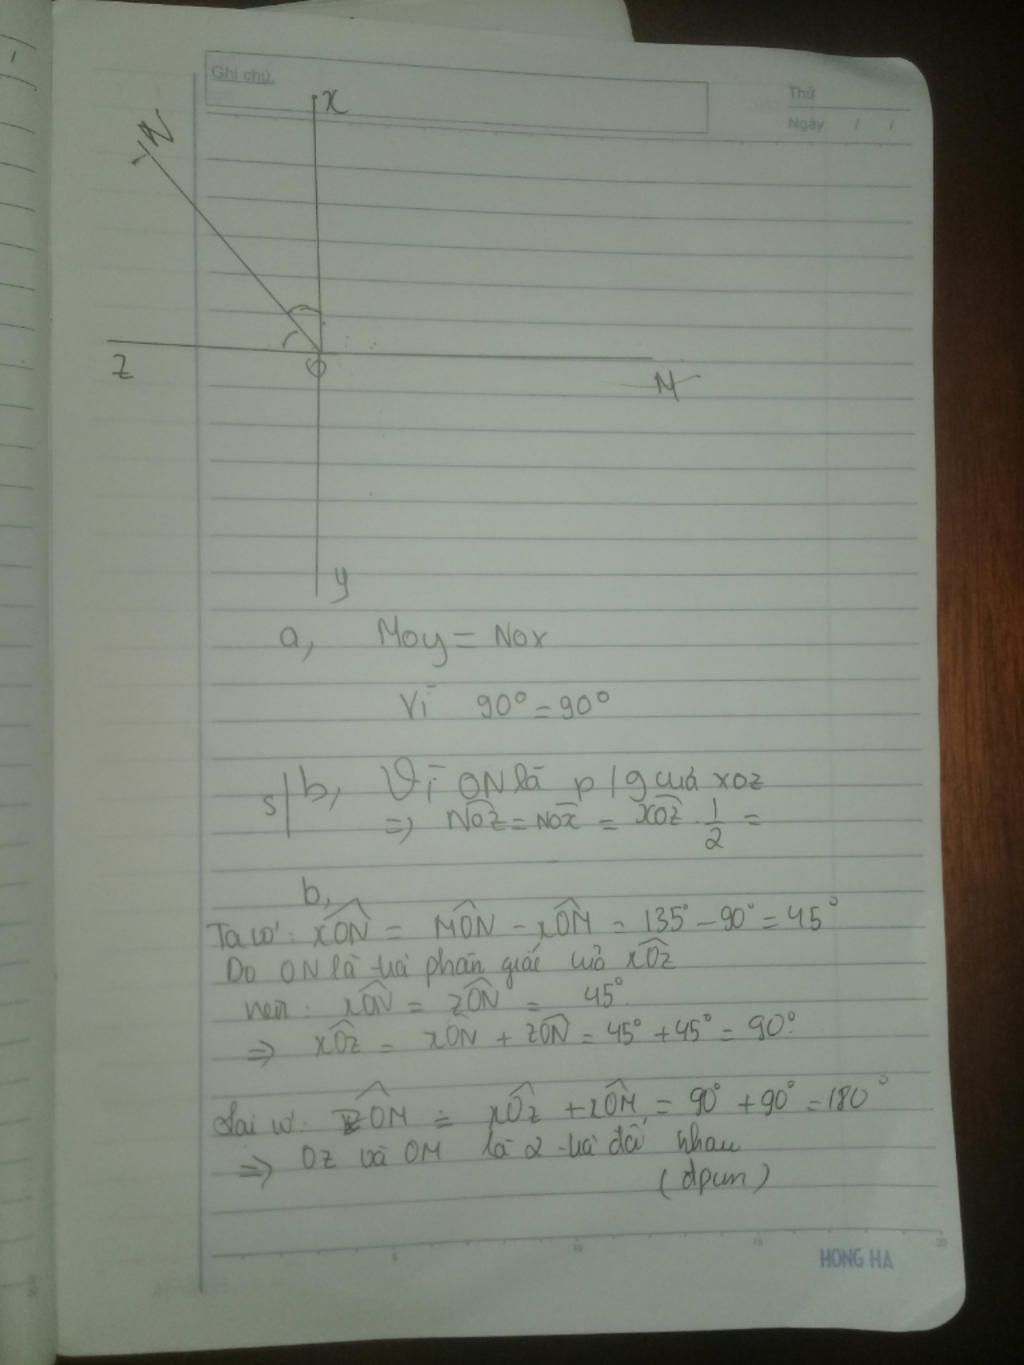 Ghi chú.
Thứ
Ngày / /
x
N
z
O
M
y
a, Moy = Nox
Vì 90° = 90°
s| b, Vì ON là p/g của xoz
=> NOz = NOx = xOz . 1/2 =
b,
Ta có: xON = MON - xOM = 135° - 90° = 45°
Do ON là tia phân giác của xOz
nên: xON = zON = 45°
=> xOz = xON + zON = 45° + 45° = 90°.
Lại có: zOM = xOz + xOM = 90° + 90° = 180°
=> Oz và OM là 2 tia đối nhau
(đpcm)
5 10 15 20
HONG HA